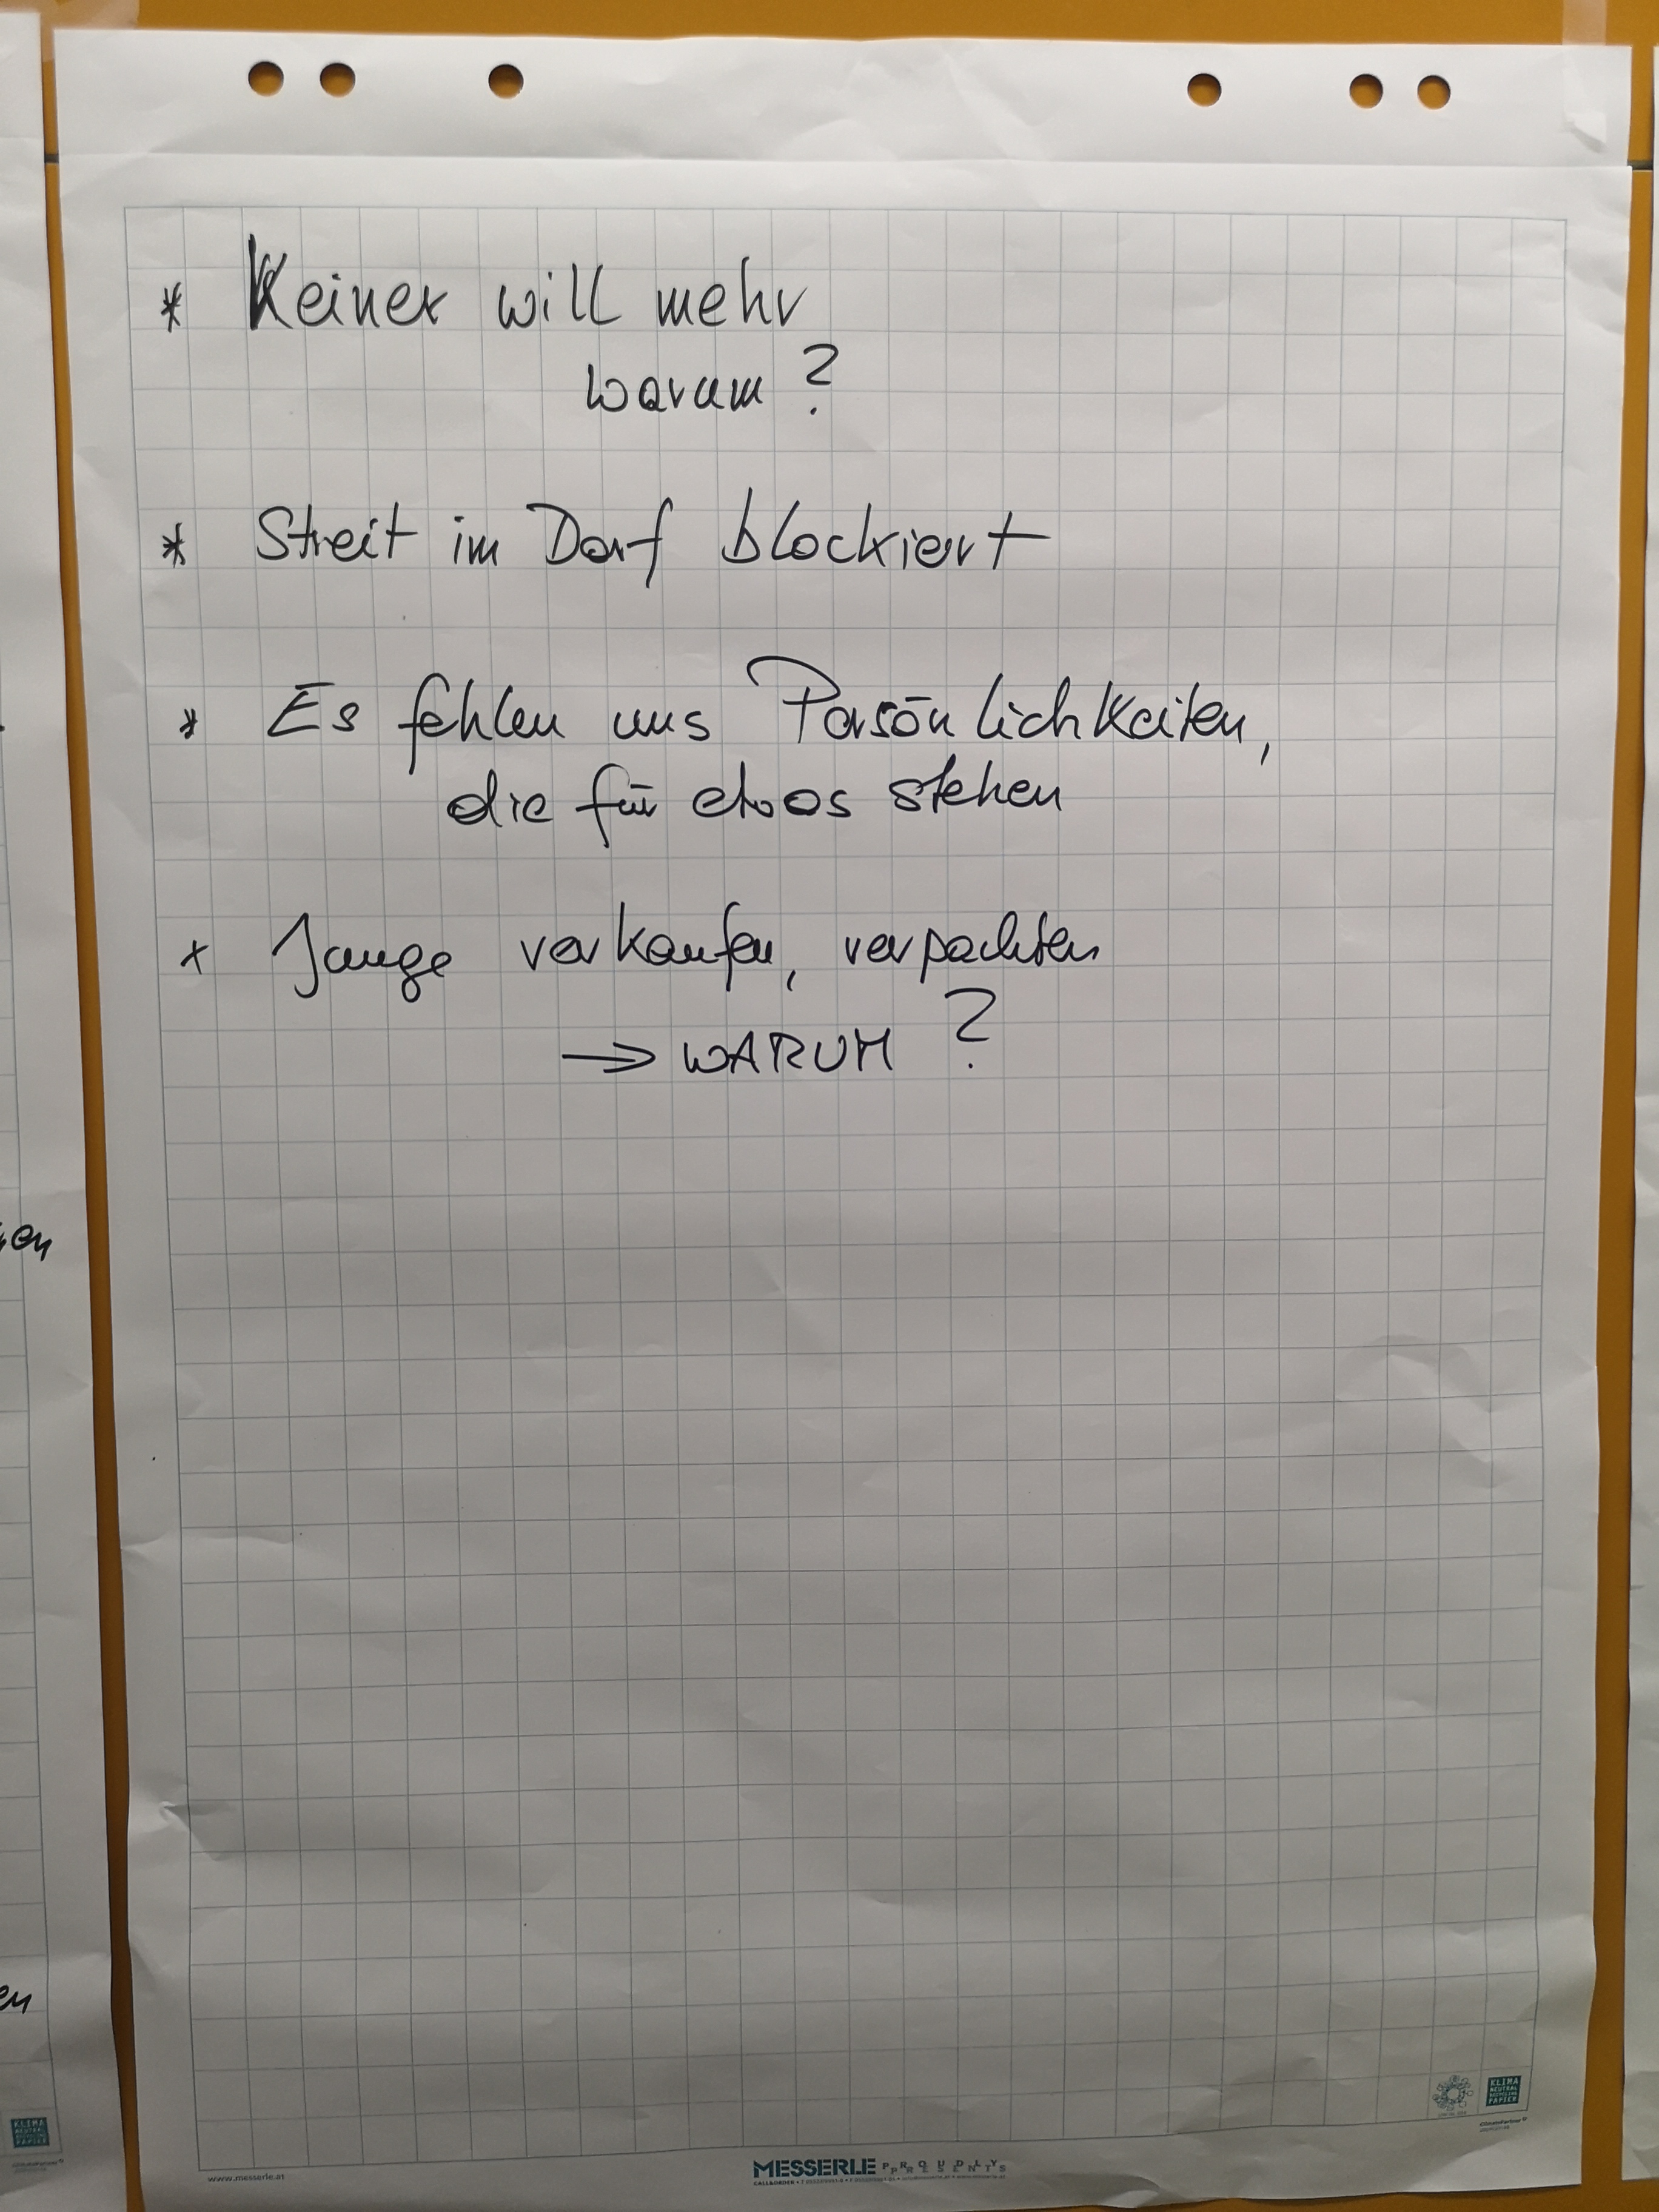 * Keiner will mehr
warum ?
* Streit im Dorf blockiert
* Es fehlen uns Persönlichkeiten,
die für etwas stehen
* Junge verkaufen, verpachten
→ WARUM ?
en
KLIMA
NEUTRAL
PAPIER
KLIMA
NEUTRAL
PAPIER
ClimatePartner
www.messerle.at
MESSERLE PROUDLY PRESENTS